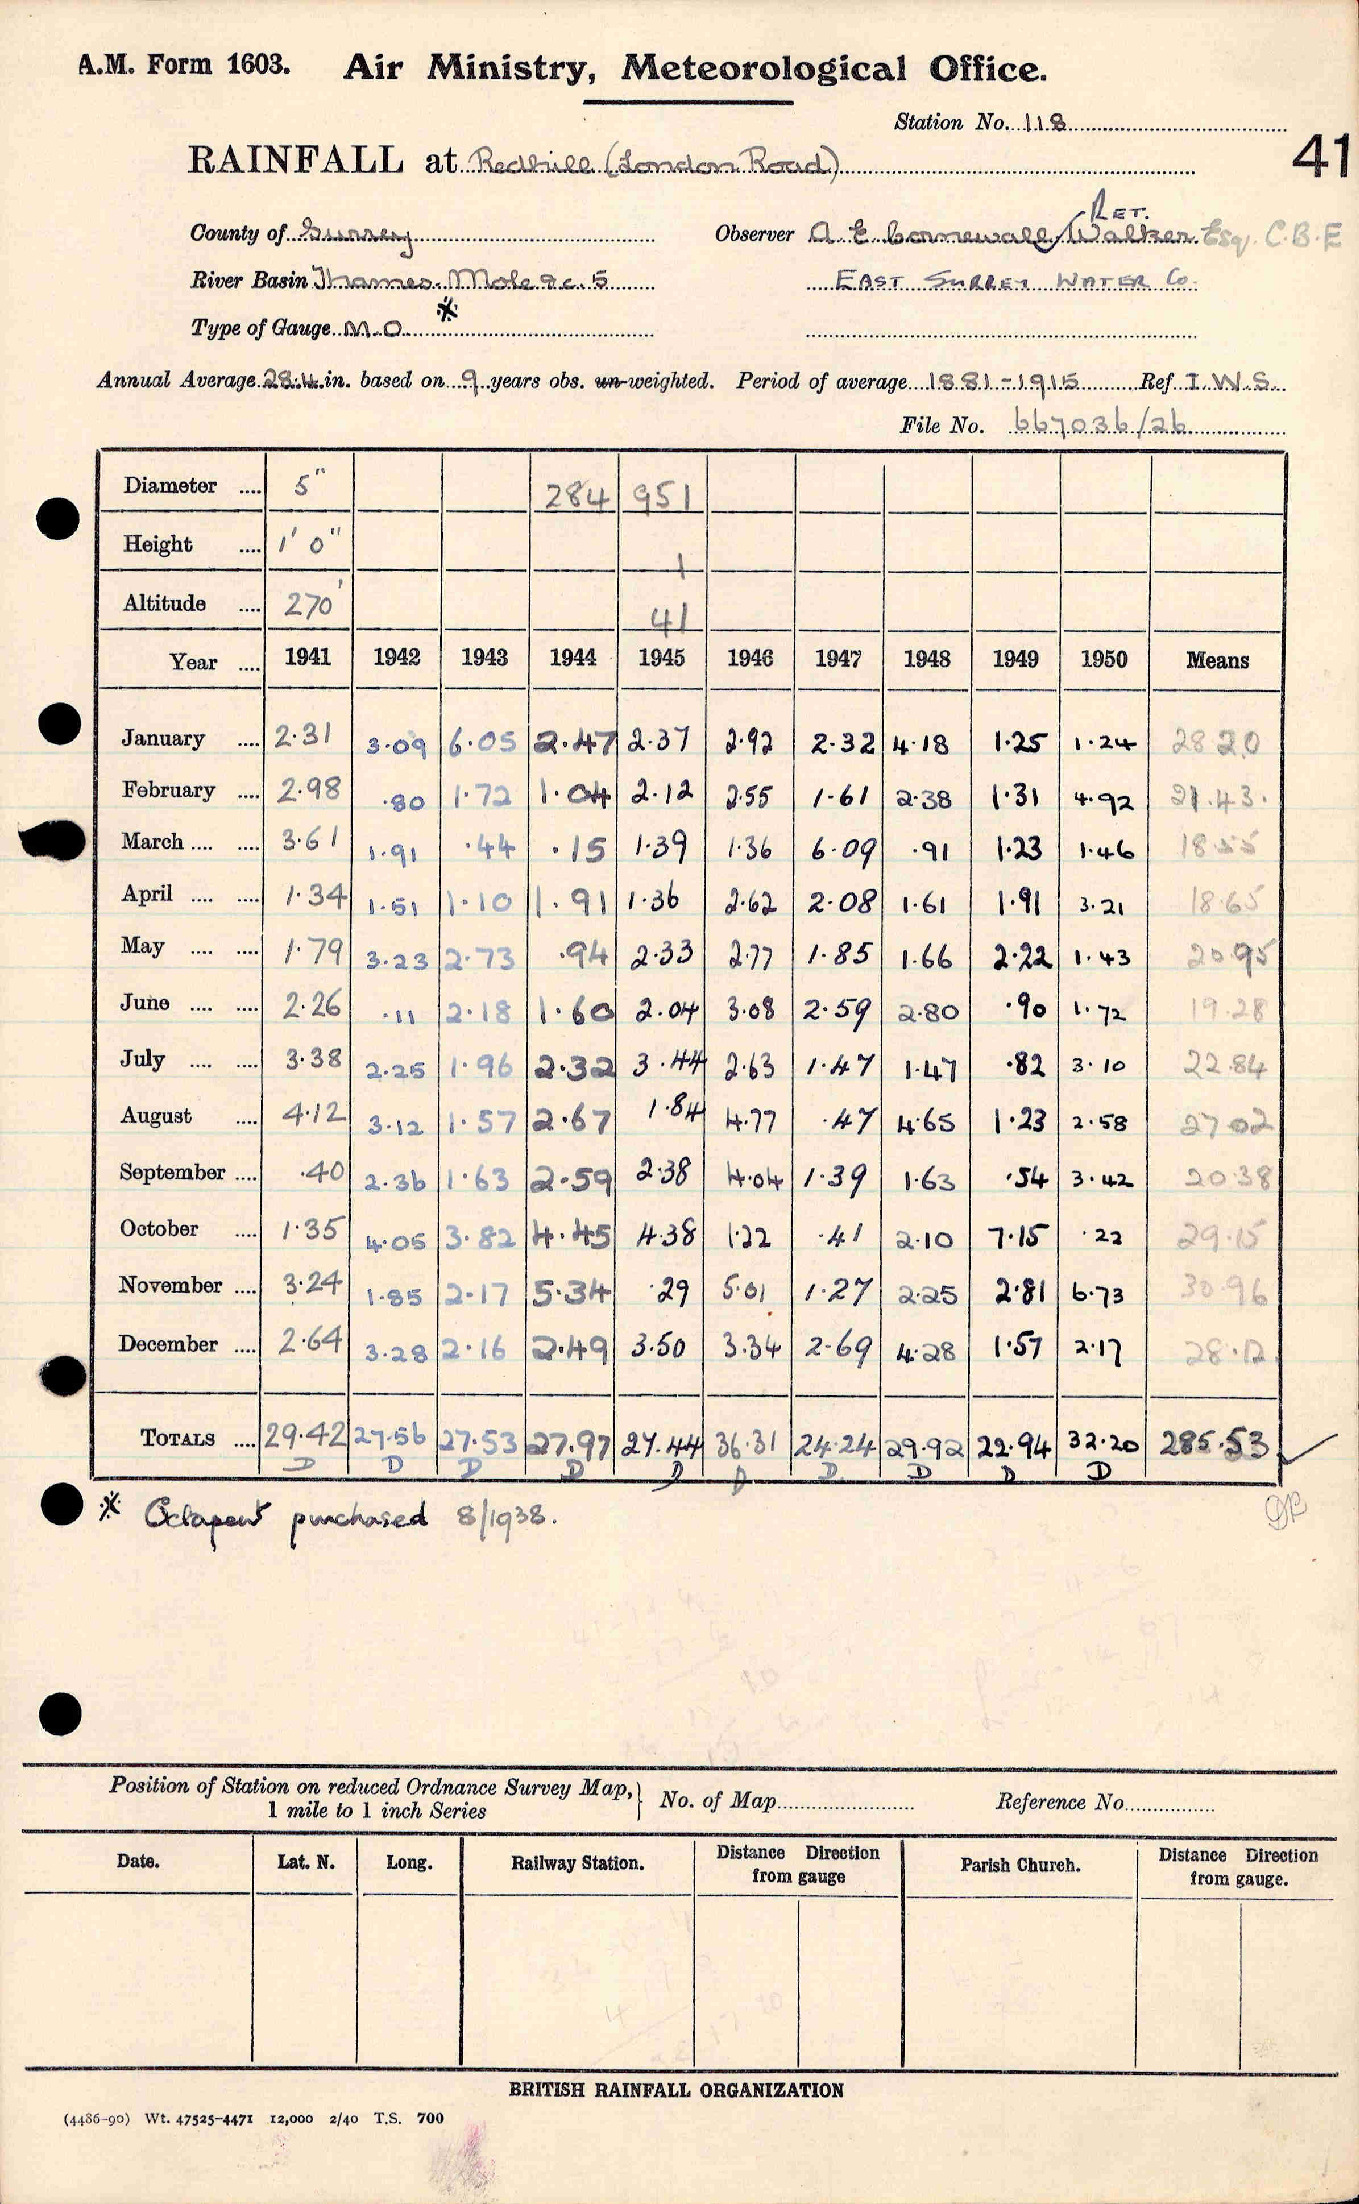 A.M. Form 1603. Air Ministry, Meteorological Office.
Station No. 118
41
RAINFALL at Redhill (London Road)
RET.
County of Surrey Observer A. E. Cornewall Walker Esq. C.B.E
River Basin Thames. Mole &c. 5 EAST SURREY WATER Co.
Type of Gauge M.O *
Annual Average 28.4 in. based on 9 years obs. un-weighted. Period of average 1881-1915 Ref I.W.S.
File No. 667036/26
Diameter .... 5" 284 951
Height .... 1' 0" 1
Altitude .... 270' 41
Year .... 1941 1942 1943 1944 1945 1946 1947 1948 1949 1950 Means
January .... 2.31 3.09 6.05 2.47 2.37 2.92 2.32 4.18 1.25 1.24 28 20
February .... 2.98 .80 1.72 1.04 2.12 2.55 1.61 2.38 1.31 4.92 21.43
March .... .... 3.61 1.91 .44 .15 1.39 1.36 6.09 .91 1.23 1.46 18.55
April .... .... 1.34 1.51 1.10 1.91 1.36 2.62 2.08 1.61 1.91 3.21 18.65
May .... .... 1.79 3.23 2.73 .94 2.33 2.77 1.85 1.66 2.22 1.43 20.95
June .... .... 2.26 .11 2.18 1.60 2.04 3.08 2.59 2.80 .90 1.72 19.28
July .... .... 3.38 2.25 1.96 2.32 3.44 2.63 1.47 1.47 .82 3.10 22.84
August .... 4.12 3.12 1.57 2.67 1.84 4.77 .47 4.65 1.23 2.58 27 02
September .... .40 2.36 1.63 2.59 2.38 4.04 1.39 1.63 .54 3.42 20.38
October .... 1.35 4.05 3.82 4.45 4.38 1.22 .41 2.10 7.15 .22 29.15
November .... 3.24 1.85 2.17 5.34 .29 5.01 1.27 2.25 2.81 6.73 30.96
December .... 2.64 3.28 2.16 2.49 3.50 3.34 2.69 4.28 1.57 2.17 28.12
TOTALS .... 29.42 27.56 27.53 27.97 27.44 36.31 24.24 29.92 22.94 32.20 285.53
D D D D D D D D D D
* Octapent purchased 8/1938.
Position of Station on reduced Ordnance Survey Map, 1 mile to 1 inch Series } No. of Map Reference No
Date. Lat. N. Long. Railway Station. Distance Direction from gauge Parish Church. Distance Direction from gauge.
BRITISH RAINFALL ORGANIZATION
(4486-90) Wt. 47525-4471 12,000 2/40 T.S. 700